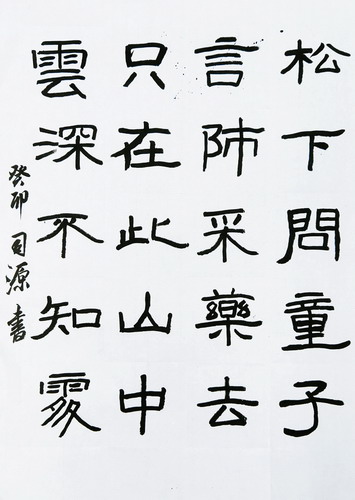 松下問童子
言師采藥去
只在此山中
雲深不知處
癸卯司源書